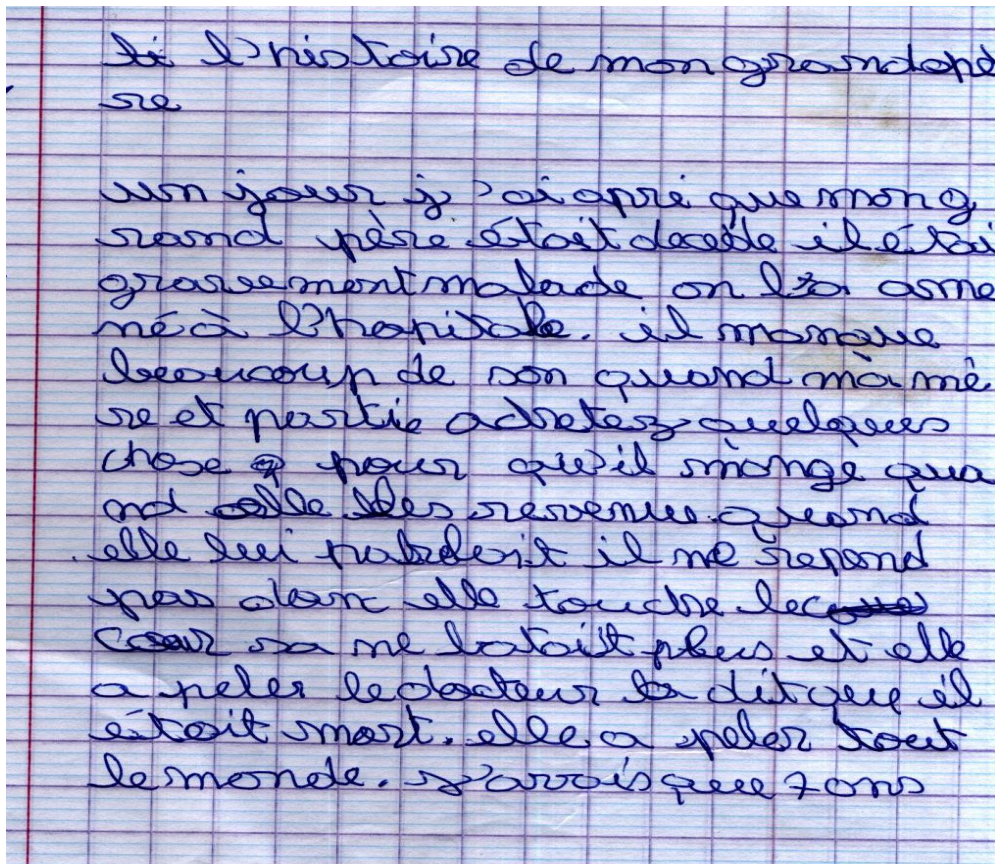 li l'histoire de mon grandapé
re
un jour j'ai apri que mon g
rand père était decede il étai
gravement malade on l'a ame
né à l'hopitale. il manque
beaucoup de son quand ma mè
re et partie achetez quelques
chose pour qu'il mange qua
nd elle les revenue. quand
elle lui parlerit il ne repond
pas donc elle touche le
cœur sa ne batait plus et elle
a peler le docteur la dit que il
était mort. elle a peler tout
le monde. j'avais que 7 ans